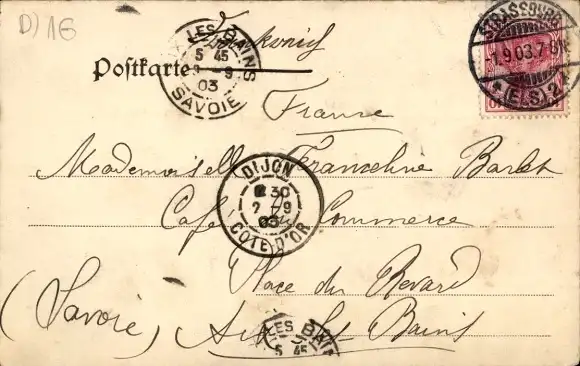 D) 16
Frankreich
Postkarte
LES BAINS
5 45
3 - 9
03
SAVOIE
STRASSBURG
1.9.03.7-8N
* (ELS) 2 *
France
Mademoiselle Franceline Barlet
DIJON
30
2 - 9
03
COTE D'OR
Café du Commerce
Place du Revard
(Savoie) Aix Les Bains
LES BAIN
5 45